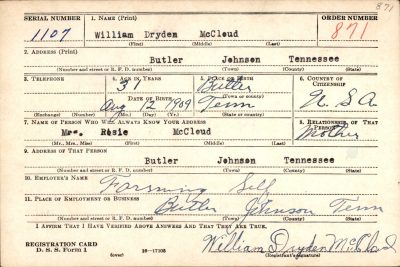 871
SERIAL NUMBER 1. NAME (Print) ORDER NUMBER
1107 William Dryden McCloud 871
(First) (Middle) (Last)
2. ADDRESS (Print)
Butler Johnson Tennessee
(Number and street or R. F. D. number) (Town) (County) (State)
3. TELEPHONE 4. AGE IN YEARS 5. PLACE OF BIRTH 6. COUNTRY OF CITIZENSHIP
31 Butler
(Town or county)
DATE OF BIRTH
Aug 12 1909 Tenn U. S. A.
(Exchange) (Number) (Mo.) (Day) (Yr.) (State or country)
7. NAME OF PERSON WHO WILL ALWAYS KNOW YOUR ADDRESS 8. RELATIONSHIP OF THAT PERSON
Mrs. Rosie McCloud Mother
(Mr., Mrs., Miss) (First) (Middle) (Last)
9. ADDRESS OF THAT PERSON
Butler Johnson Tennessee
(Number and street or R. F. D. number) (Town) (County) (State)
10. EMPLOYER'S NAME
Farming Self
11. PLACE OF EMPLOYMENT OR BUSINESS
Butler Johnson Tenn
(Number and street or R. F. D. number) (Town) (County) (State)
I AFFIRM THAT I HAVE VERIFIED ABOVE ANSWERS AND THAT THEY ARE TRUE.
REGISTRATION CARD
D. S. S. Form 1 (over) 16—17105 William Dryden McCloud
(Registrant's signature)